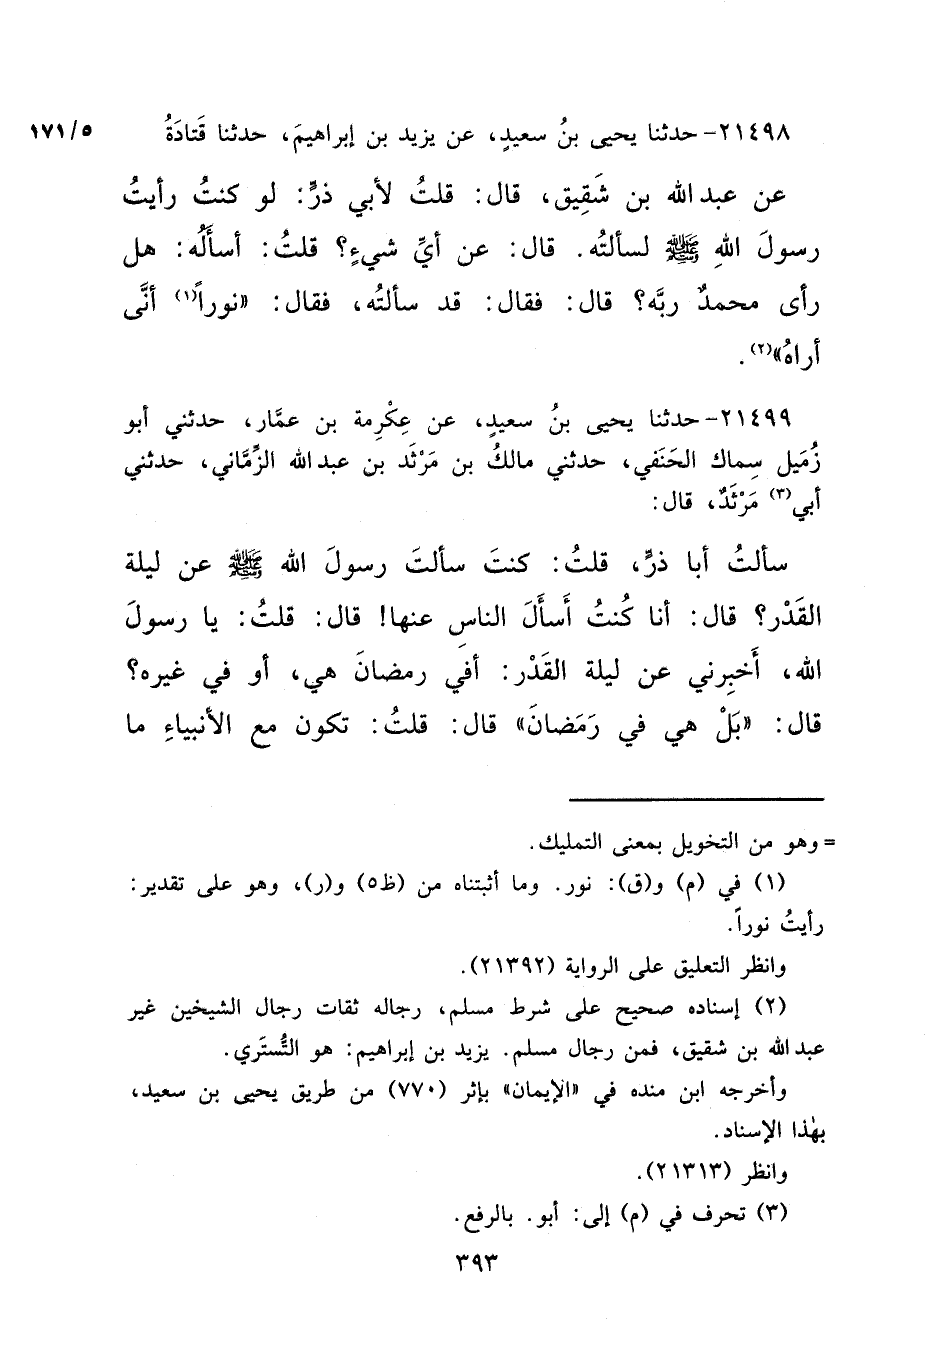 ٢١٤٩٨- حدثنا يحيى بنُ سعيدٍ، عن يزيد بن إبراهيمَ، حدثنا قَتادَةُ ١٧١/٥
عن عبد الله بن شَقِيق، قال: قلتُ لأبي ذرٍّ: لو كنتُ رأيتُ
رسولَ اللهِ ﷺ لسألتُه. قال: عن أيِّ شيءٍ؟ قلتُ: أسألُه: هل
رأى محمدٌ ربَّه؟ قال: فقال: قد سألته، فقال: «نوراً(١) أنَّى
أراهُ»(٢).
٢١٤٩٩- حدثنا يحيى بنُ سعيدٍ، عن عِكْرِمة بن عمَّار، حدثني أبو
زُمَيل سِماك الحَنَفي، حدثني مالكُ بن مَرْثَد بن عبد الله الزِّمَّاني، حدثني
أبي(٣) مَرْثَدٌ، قال:
سألتُ أبا ذرٍّ، قلتُ: كنتَ سألتَ رسولَ الله ﷺ عن ليلة
القَدْر؟ قال: أنا كُنتُ أَسأَلَ الناسِ عنها! قال: قلتُ: يا رسولَ
الله، أَخبِرني عن ليلة القَدْر: أفي رمضانَ هي، أو في غيره؟
قال: «بَلْ هي في رَمَضانَ» قال: قلتُ: تكون مع الأنبياءِ ما
= وهو من التخويل بمعنى التمليك.
(١) في (م) و(ق): نور. وما أثبتناه من (ظ٥) و(ر)، وهو على تقدير:
رأيتُ نوراً.
وانظر التعليق على الرواية (٢١٣٩٢).
(٢) إسناده صحيح على شرط مسلم، رجاله ثقات رجال الشيخين غير
عبد الله بن شقيق، فمن رجال مسلم. يزيد بن إبراهيم: هو التُّستَري.
وأخرجه ابن منده في «الإيمان» بإثر (٧٧٠) من طريق يحيى بن سعيد،
بهٰذا الإسناد.
وانظر (٢١٣١٣).
(٣) تحرف في (م) إلى: أبو. بالرفع.
٣٩٣